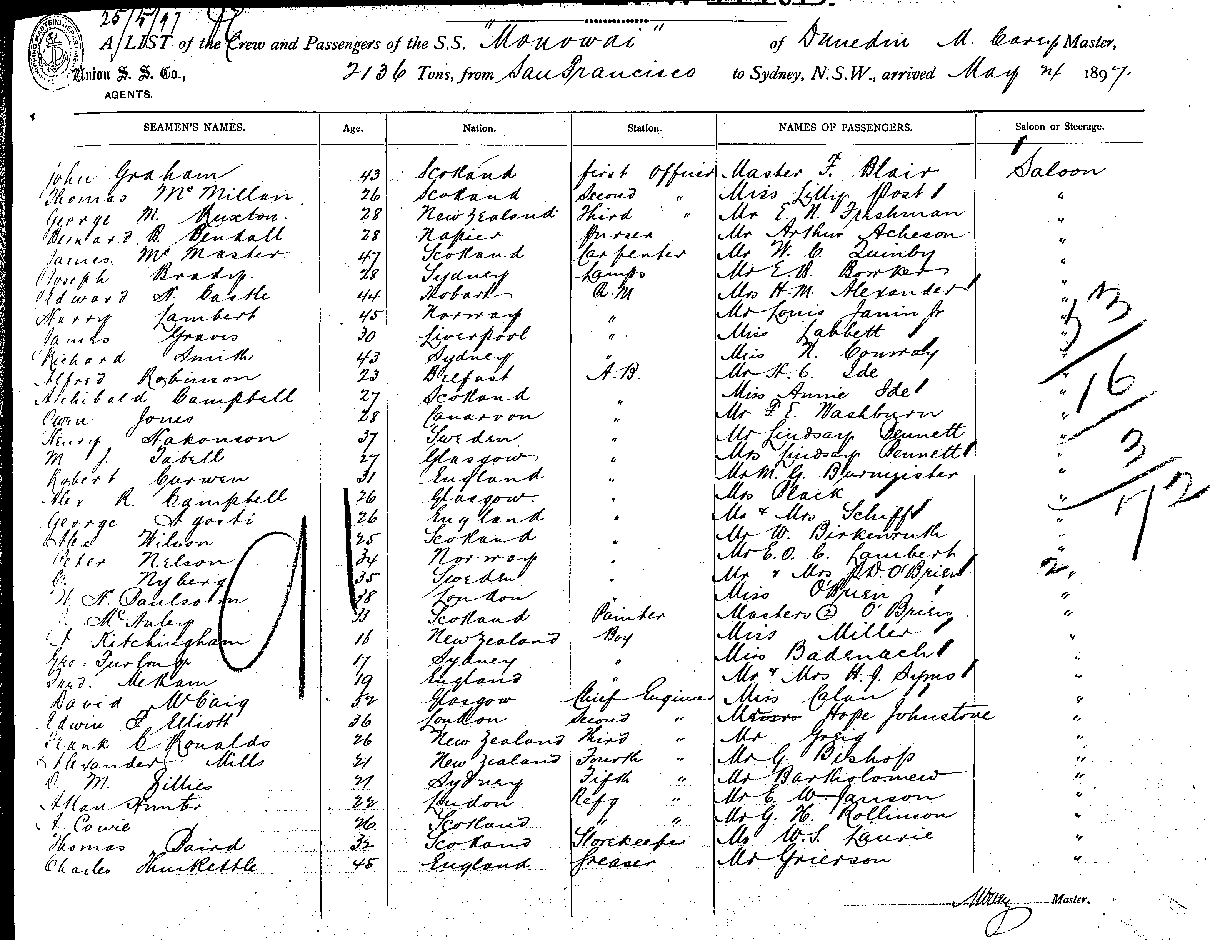 25/5/97
A LIST of the Crew and Passengers of the S.S. "Monowai" of Dunedin M. Carey Master,
Union S. S. Co., 2136 Tons, from San Francisco to Sydney, N.S.W., arrived May 24 1897.
AGENTS.
SEAMEN'S NAMES. Age. Nation. Station. NAMES OF PASSENGERS. Saloon or Steerage.
John Graham 43 Scotland first Officer Master F. Blair Saloon
Thomas McMillan 26 Scotland Second " Miss Lilly Post "
George M. Ruxton 28 New Zealand Third " Mr E. N. Freshman "
Bernard B. Bendall 28 Napier Purser Mr Arthur Acheson "
James McMaster 47 Scotland Carpenter Mr W. C. Quinby "
Joseph Brady 28 Sydney Lamps Mr E. W. Bowker "
Edward N. Castle 44 Hobart Q.M Mrs H. M. Alexander "
Harry Lambert 45 Norway " Mr Louis Janin Jr "
James Graves 30 Liverpool " Miss Labbett "
Richard Smith 43 Sydney " Miss N. Conway "
Alfred Robinson 23 Belfast A.B. Mr H. C. Ide "
Archibald Campbell 27 Scotland " Miss Annie Ide "
Owen Jones 28 Canarvon " Mr F. E. Washburn "
Henry Hakonson 37 Sweden " Mr Lindsay Dennett "
M. J. Tabell 27 Glasgow " Mrs Lindsay Dennett "
Robert Curwen 31 England " Mr M. G. Burmeister "
Alex R. Campbell 26 Glasgow " Mrs Black "
George Agosti 26 England " Mr & Mrs Schiff "
Wilson 25 Scotland " Mr W. Birkenruth "
Peter Nelson 34 Norway " Mr E. O. C. Lambert "
Nyberg 35 Sweden " Mr & Mrs J. D. O'Brien 2
N. Paulson 18 London " Miss O'Brien "
McAuley Scotland Painter Masters (2) O'Brien "
Ketchingham 16 New Zealand Boy Miss Miller "
Geo. Furlong 17 Sydney " Miss Badenach "
Fred. Meham 19 England " Mr & Mrs H. J. Syms "
David McCaig 52 Glasgow Chief Engineer Miss Colan "
Edwin F. Elliott 36 London Second " Hope Johnstone "
Frank C Ronalds 26 New Zealand Third " Mr Greig "
Alexander Mills 21 New Zealand Fourth " Mr G Bishop "
D. M. Gillies 21 Sydney Fifth " Mr Bartholomew "
Allan Hunter 22 London Refg " Mr E W Janson "
A. Cowie 26 Scotland " " Mr G. H. Rollinson "
Thomas Baird 32 Scotland Storekeeper Mr W. S. Laurie "
Charles Hunkettle 45 England Greaser Mr Grierson "
53
16
3
72
Master.